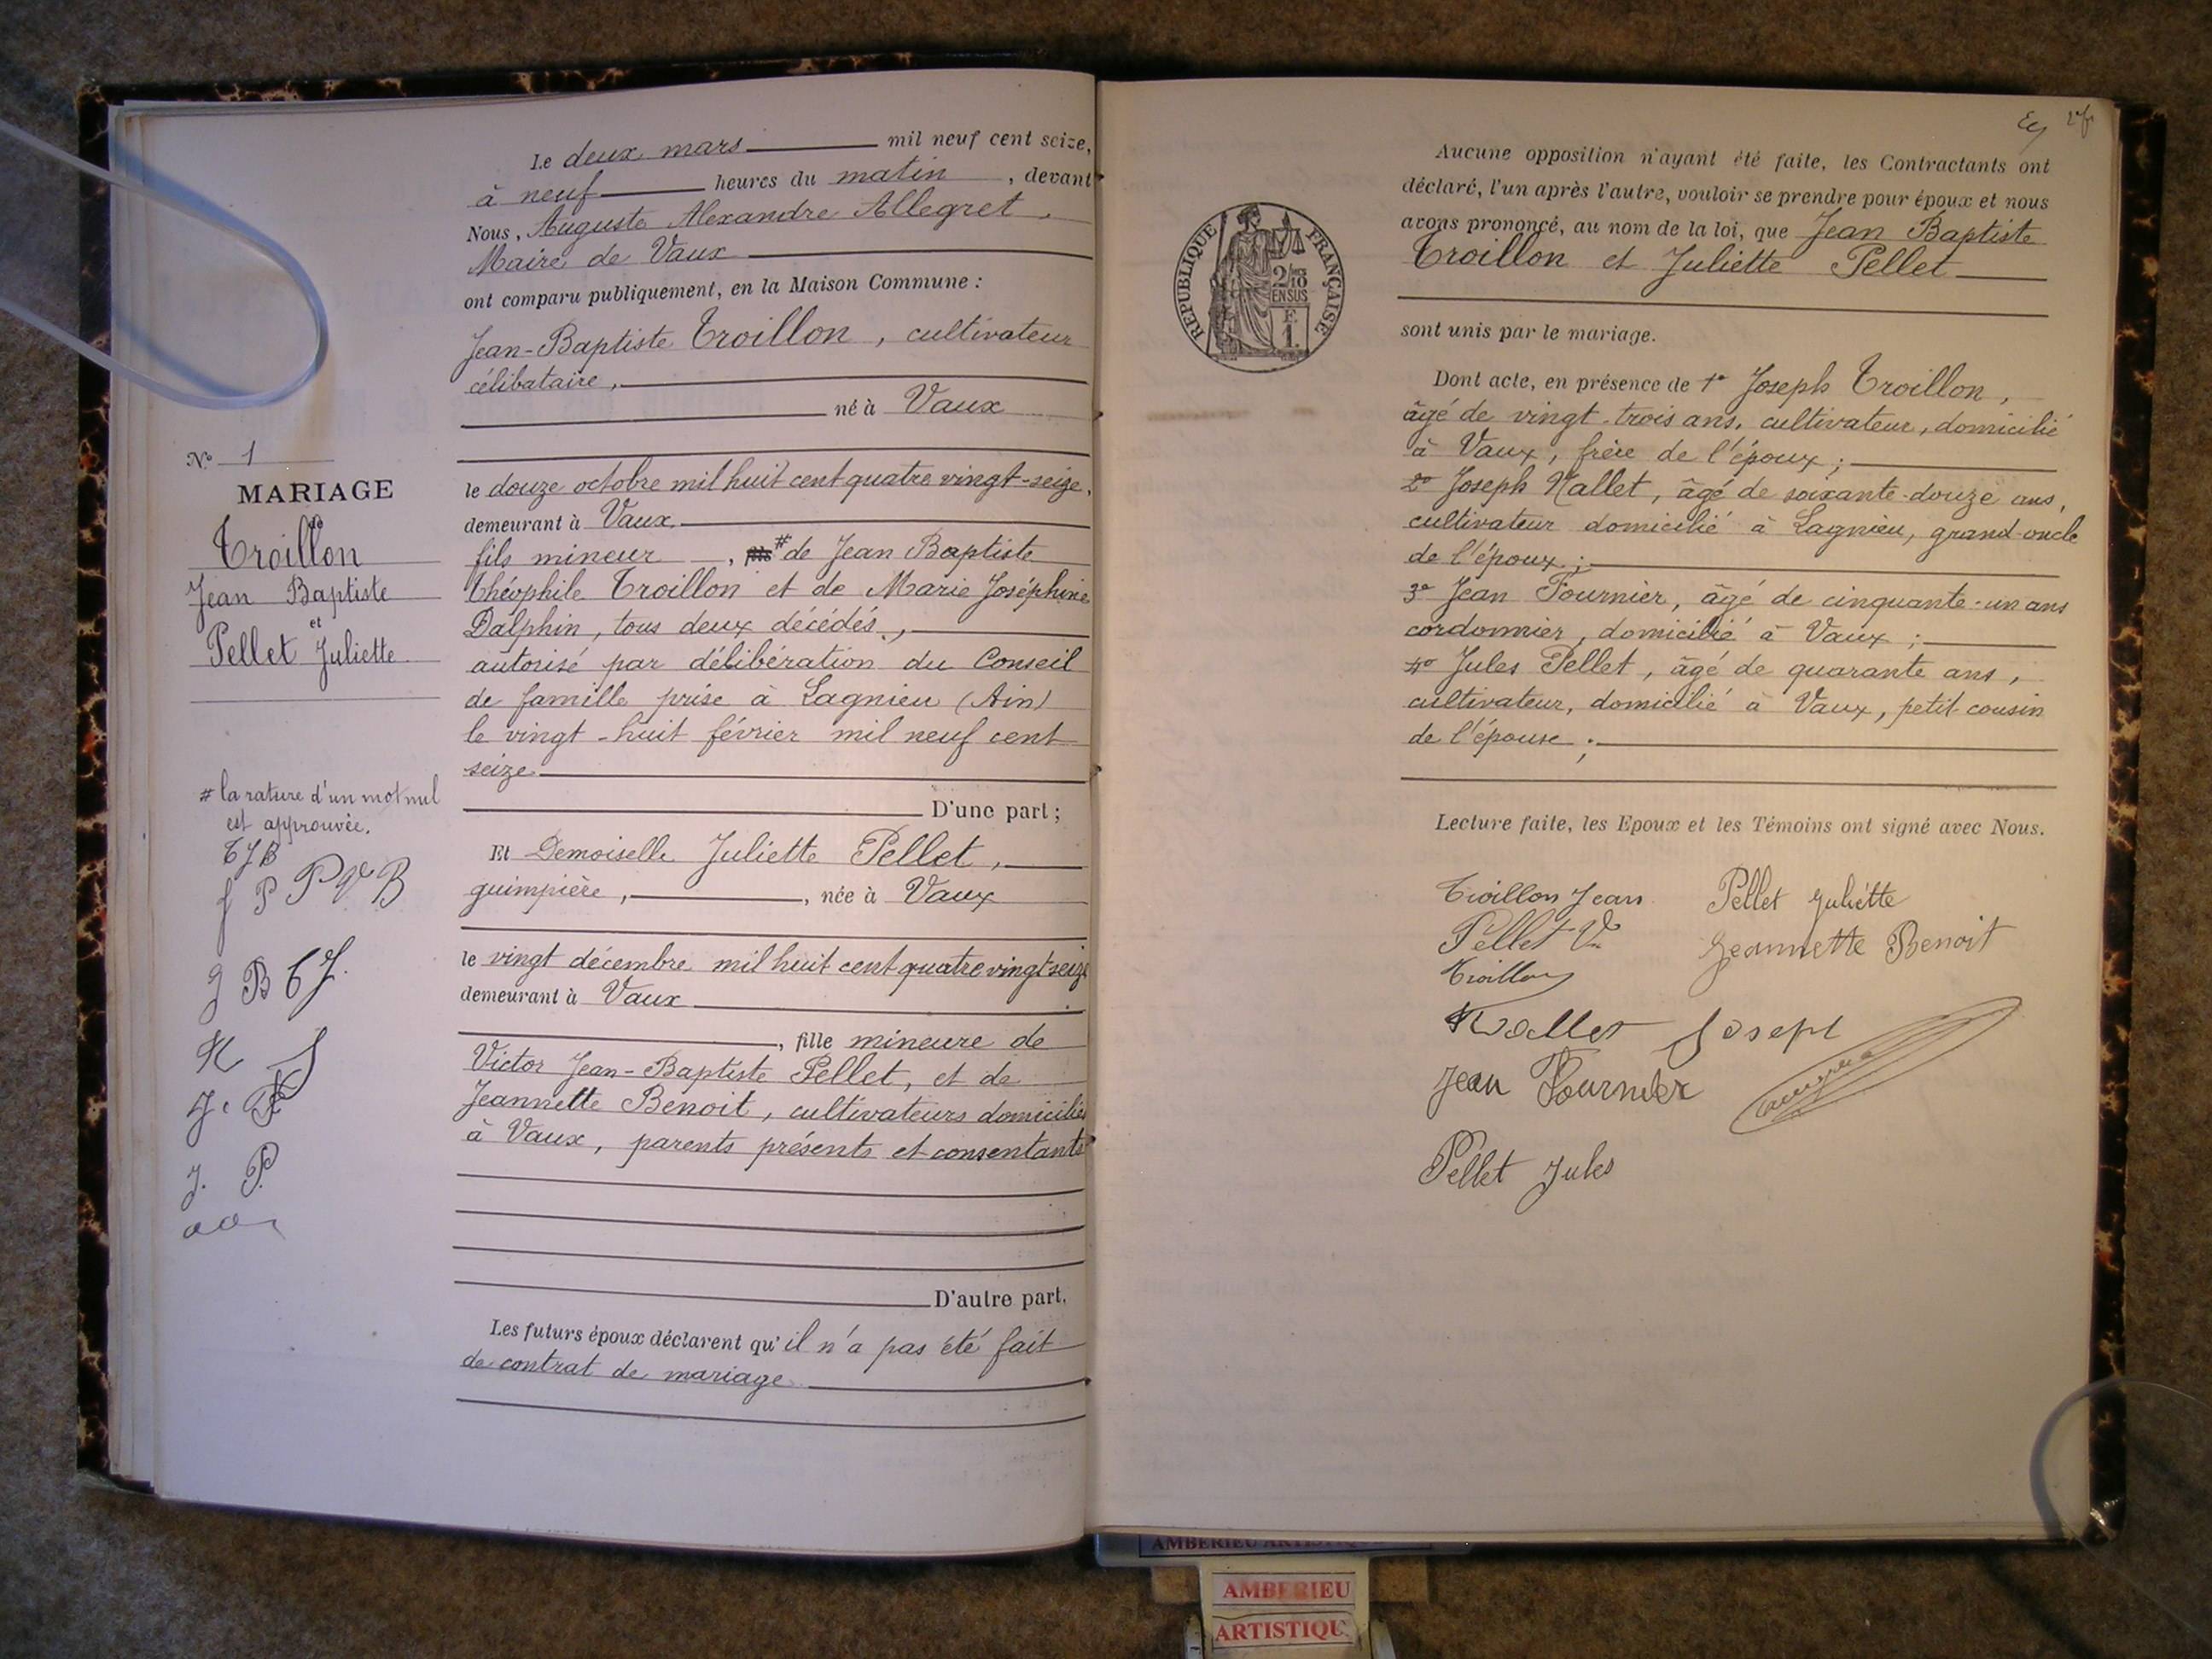 Le deux mars mil neuf cent seize,
à neuf heures du matin, devant
Nous, Auguste Alexandre Allegret,
Maire de Vaux
ont comparu publiquement, en la Maison Commune :
Jean-Baptiste Troillon, cultivateur
célibataire,
né à Vaux
le douze octobre mil huit cent quatre vingt-seize,
demeurant à Vaux
fils mineur, fils # de Jean Baptiste
Théophile Troillon et de Marie Joséphine
Dalphin, tous deux décédés,
autorisé par délibération du Conseil
de famille prise à Lagnieu (Ain)
le vingt-huit février mil neuf cent
seize
D'une part ;
Et Demoiselle Juliette Pellet,
guimpière, née à Vaux
le vingt décembre mil huit cent quatre vingt seize
demeurant à Vaux
, fille mineure de
Victor Jean-Baptiste Pellet, et de
Jeannette Benoit, cultivateurs domiciliés
à Vaux, parents présents et consentants
D'autre part.
Les futurs époux déclarent qu'il n'a pas été fait
de contrat de mariage
No 1
MARIAGE
de
Troillon
Jean Baptiste
et
Pellet Juliette
# la rature d'un mot nul
est approuvée.
TJB
J P P V B
J B T J.
N J
J. F
J. P
aa
2 fr
Aucune opposition n'ayant été faite, les Contractants ont
déclaré, l'un après l'autre, vouloir se prendre pour époux et nous
avons prononcé, au nom de la loi, que Jean Baptiste
Troillon et Juliette Pellet
sont unis par le mariage.
Dont acte, en présence de 1° Joseph Troillon,
âgé de vingt-trois ans, cultivateur, domicilié
à Vaux, frère de l'époux ;
2° Joseph Nallet, âgé de soixante-douze ans,
cultivateur domicilié à Lagnieu, grand-oncle
de l'époux ;
3° Jean Fournier, âgé de cinquante-un ans
cordonnier, domicilié à Vaux ;
4° Jules Pellet, âgé de quarante ans,
cultivateur, domicilié à Vaux, petit cousin
de l'épouse ;
Lecture faite, les Epoux et les Témoins ont signé avec Nous.
Troillon Jean Pellet Juliétte
Pellet V Jeannette Benoit
Troillon
Nallet Joseph
Jean Fournier
Pellet Jules
RÉPUBLIQUE FRANÇAISE
2/10
EN SUS
F
1.
AMBERIEU ARTISTIQU
AMBERIEU
ARTISTIQU